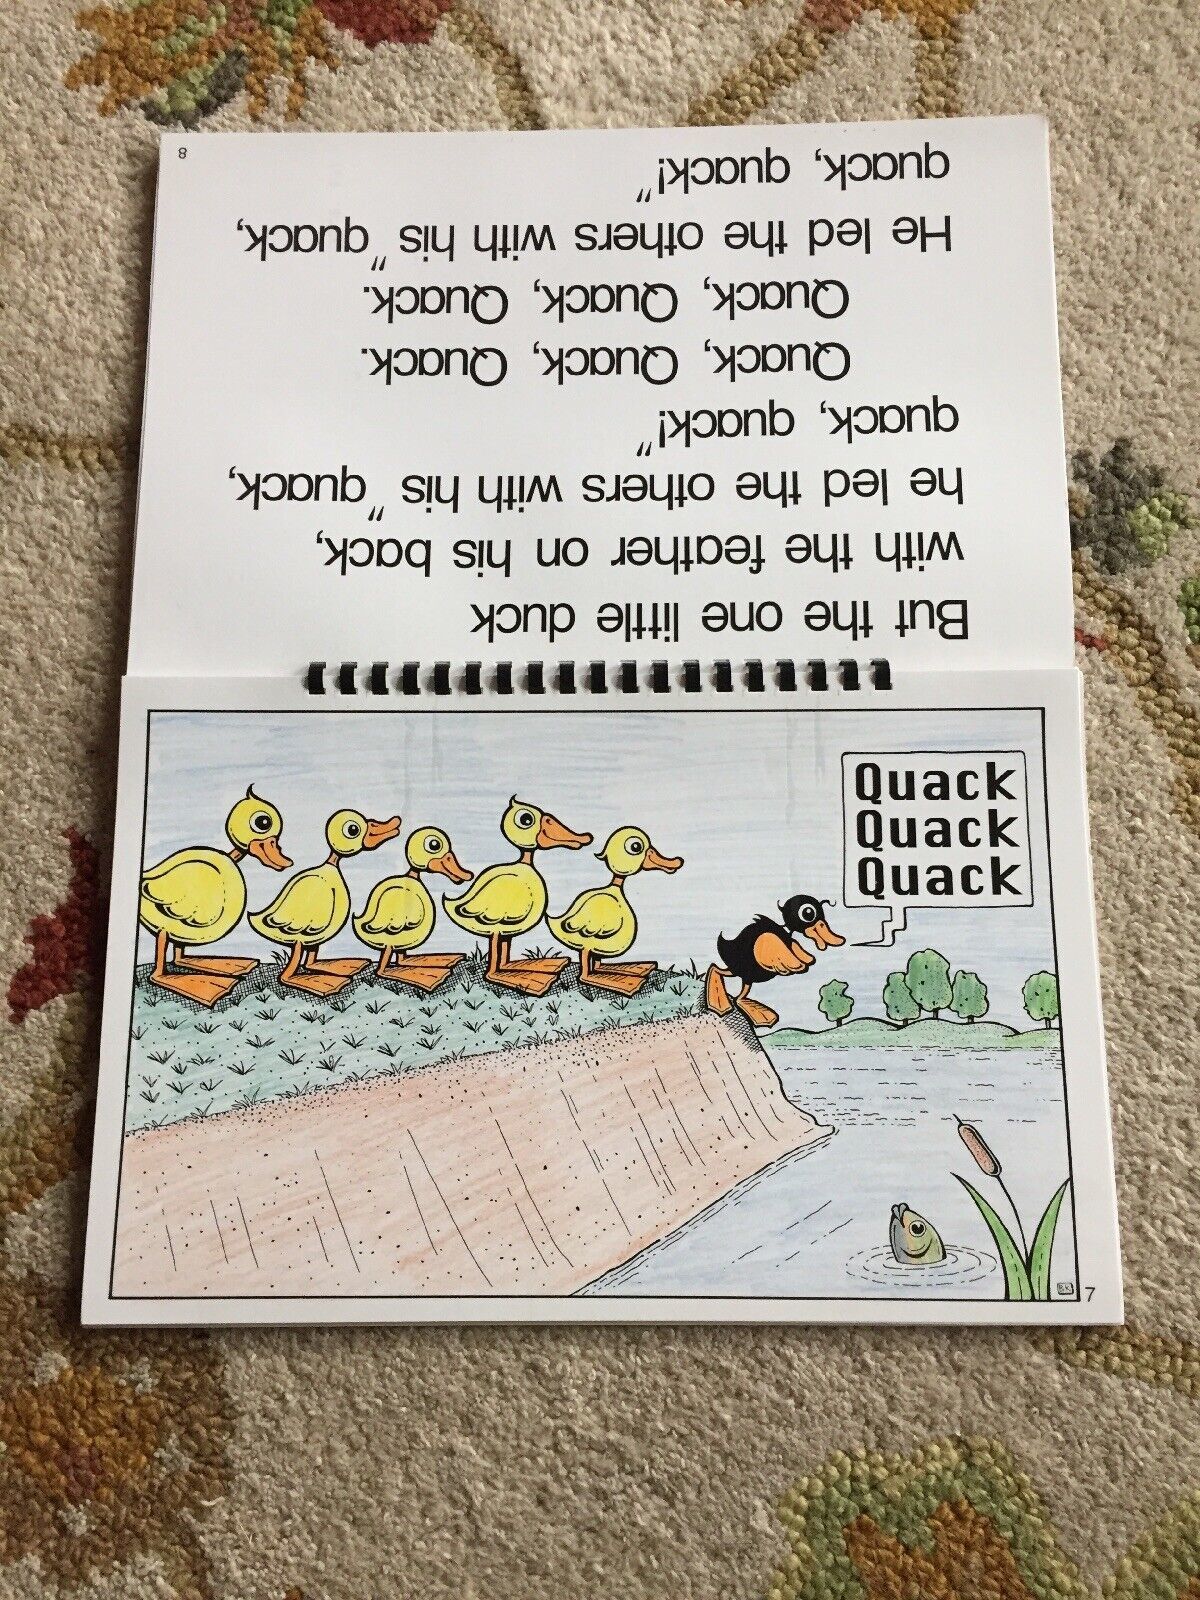 But the one little duck
with the feather on his back,
he led the others with his "quack,
quack, quack!"
Quack, Quack, Quack.
Quack, Quack, Quack.
He led the others with his "quack,
quack, quack!"
8
Quack
Quack
Quack
7